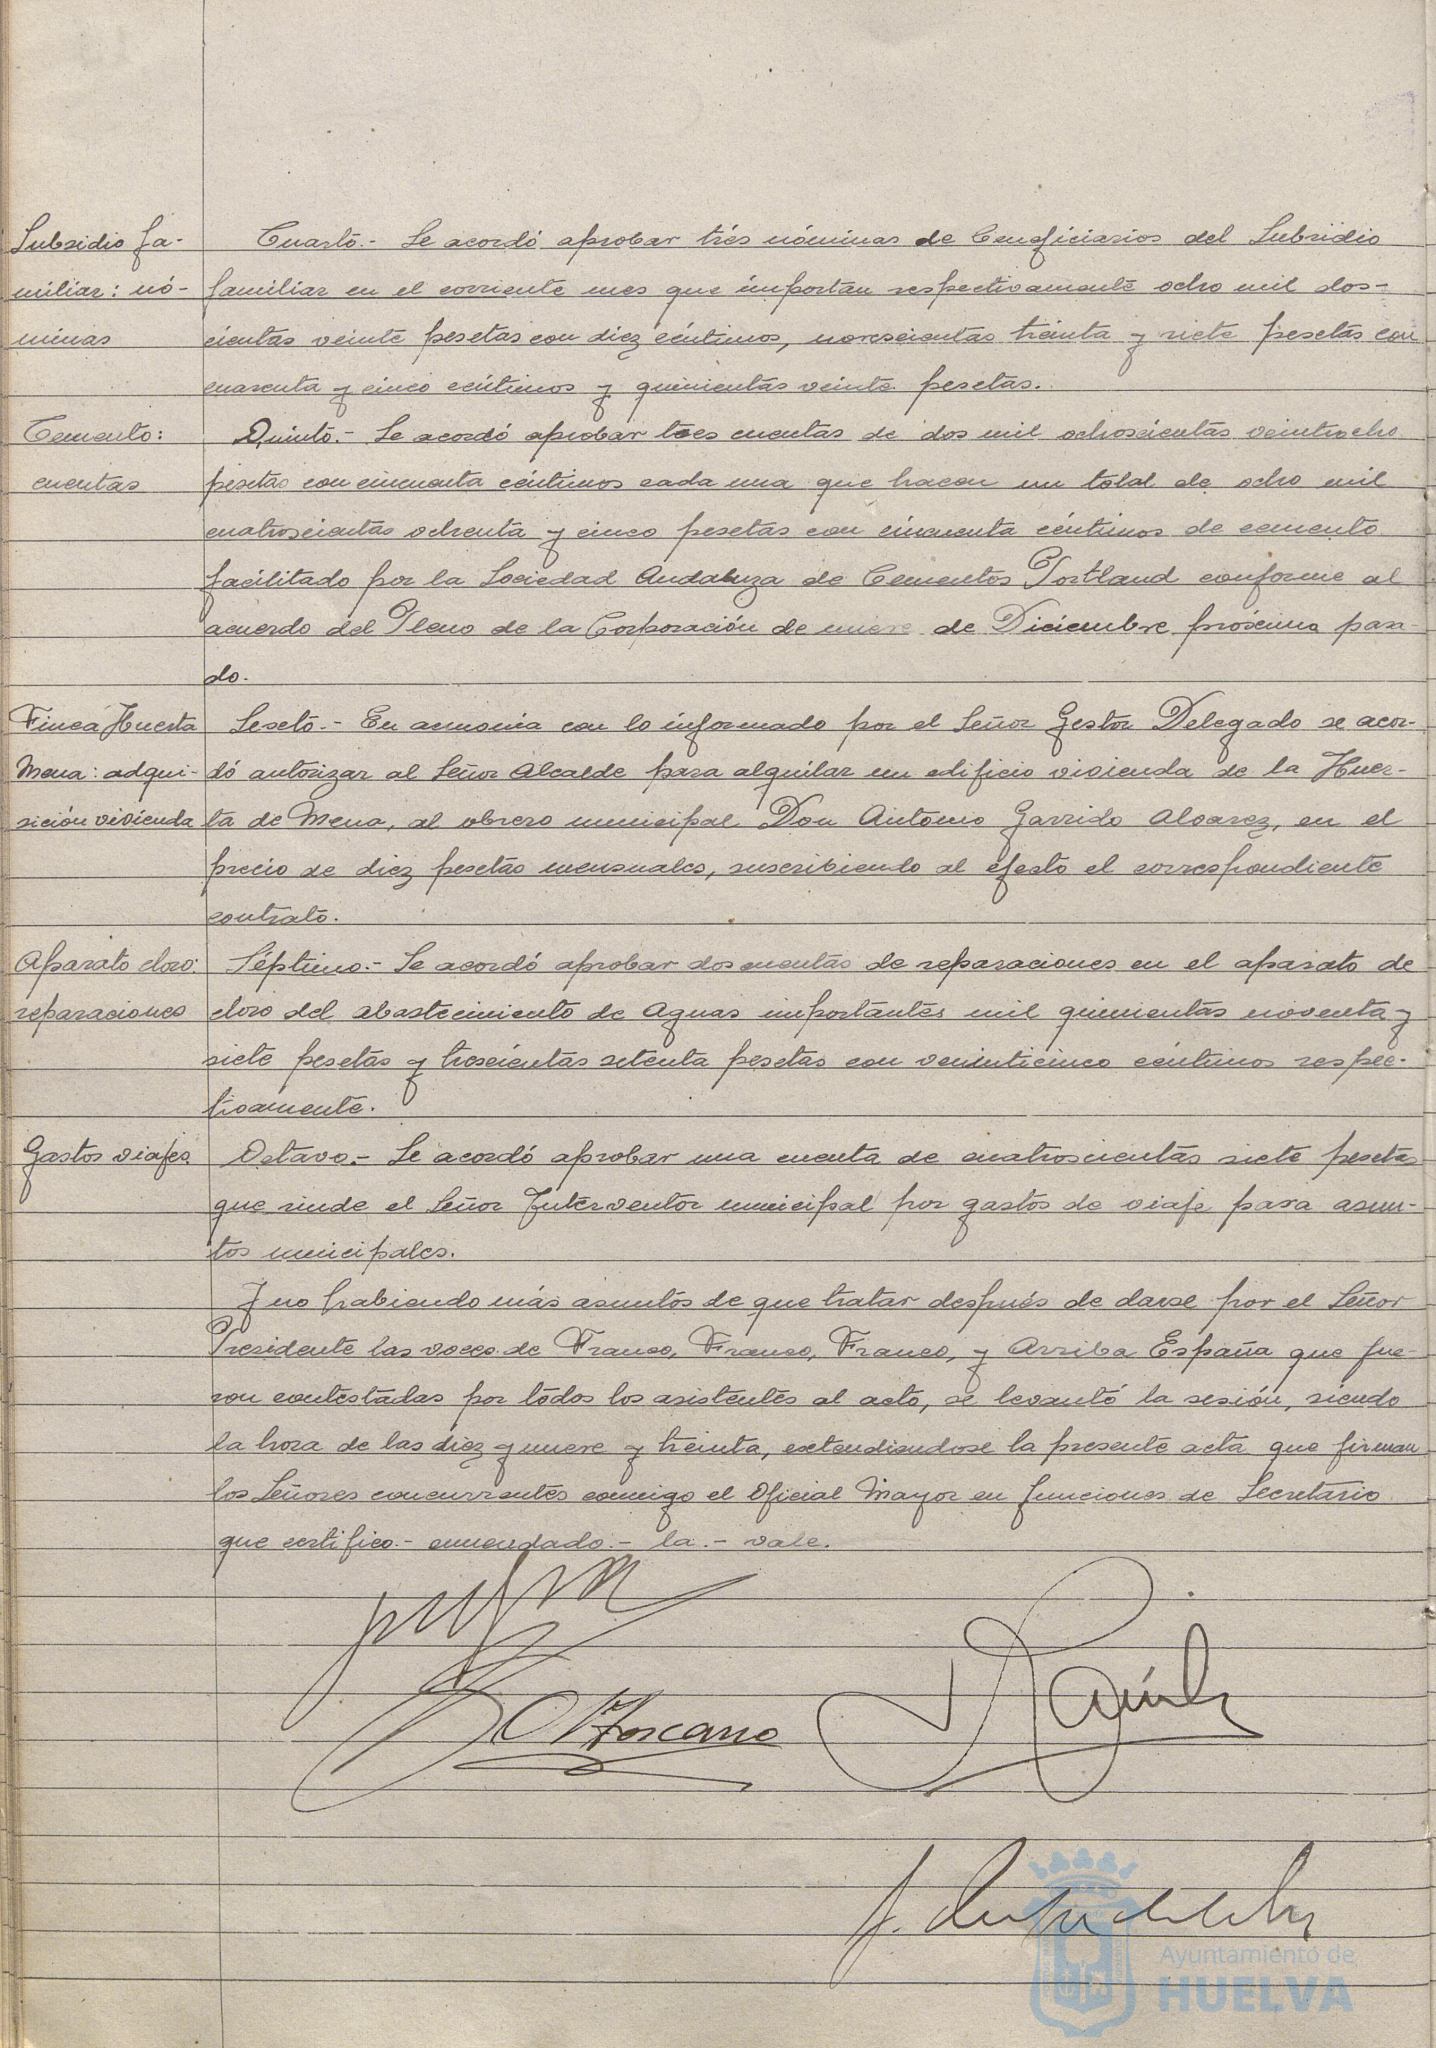 Subsidio fa-
miliar: nó-
minas
Cuarto.- Se acordó aprobar trés nóminas de Beneficiarios del Subsidio
familiar en el corriente mes que importan respectivamente ocho mil dos-
cientas veinte pesetas con diez céntimos, novescientas treinta y siete pesetas con
cuarenta y cinco céntimos y quinientas veinte pesetas.
Cemento:
cuentas
Quinto.- Se acordó aprobar tres cuentas de dos mil ochoscientas veintiocho
pesetas con cincuenta céntimos cada una que hacen un total de ocho mil
cuatroscientas ochenta y cinco pesetas con cincuenta céntimos de cemento
facilitado por la Sociedad Andaluza de Cementos Portland conforme al
acuerdo del Pleno de la Corporación de nueve de Diciembre próximo pasa-
do.
Finca Huerta
Mena: adqui-
sición vivienda
Sesto.- En armonia con lo informado por el Señor Gestor Delegado se acor-
dó autorizar al Señor Alcalde para alquilar un edificio vivienda de la Huer-
ta de Mena, al obrero municipal Don Antonio Garrido Alvarez, en el
precio de diez pesetas mensuales, suscribiendo al efecto el correspondiente
contrato.
Aparato cloro:
reparaciones
Séptimo.- Se acordó aprobar dos cuentas de reparaciones en el aparato de
cloro del abastecimiento de Aguas importantes mil quinientas noventa y
siete pesetas y trescientas setenta pesetas con veninticinco céntimos respec-
tivamente.
Gastos viajes.
Octavo.- Se acordó aprobar una cuenta de cuatroscientas siete pesetas
que rinde el Señor Interventor municipal por gastos de viaje para asun-
tos municipales.
Y no habiendo más asuntos de que tratar después de darse por el Señor
Presidente las voces de Franco, Franco, Franco, y Arriba España que fue-
ron contestadas por todos los asistentes al acto, se levantó la sesión, siendo
la hora de las diez y nueve y treinta, extendiendose la presente acta que firman
los Señores concurrentes conmigo el Oficial Mayor en funciones de Secretario
que certifico.- enmendado.- la.- vale.
Toscano
Ayuntamiento de
HUELVA